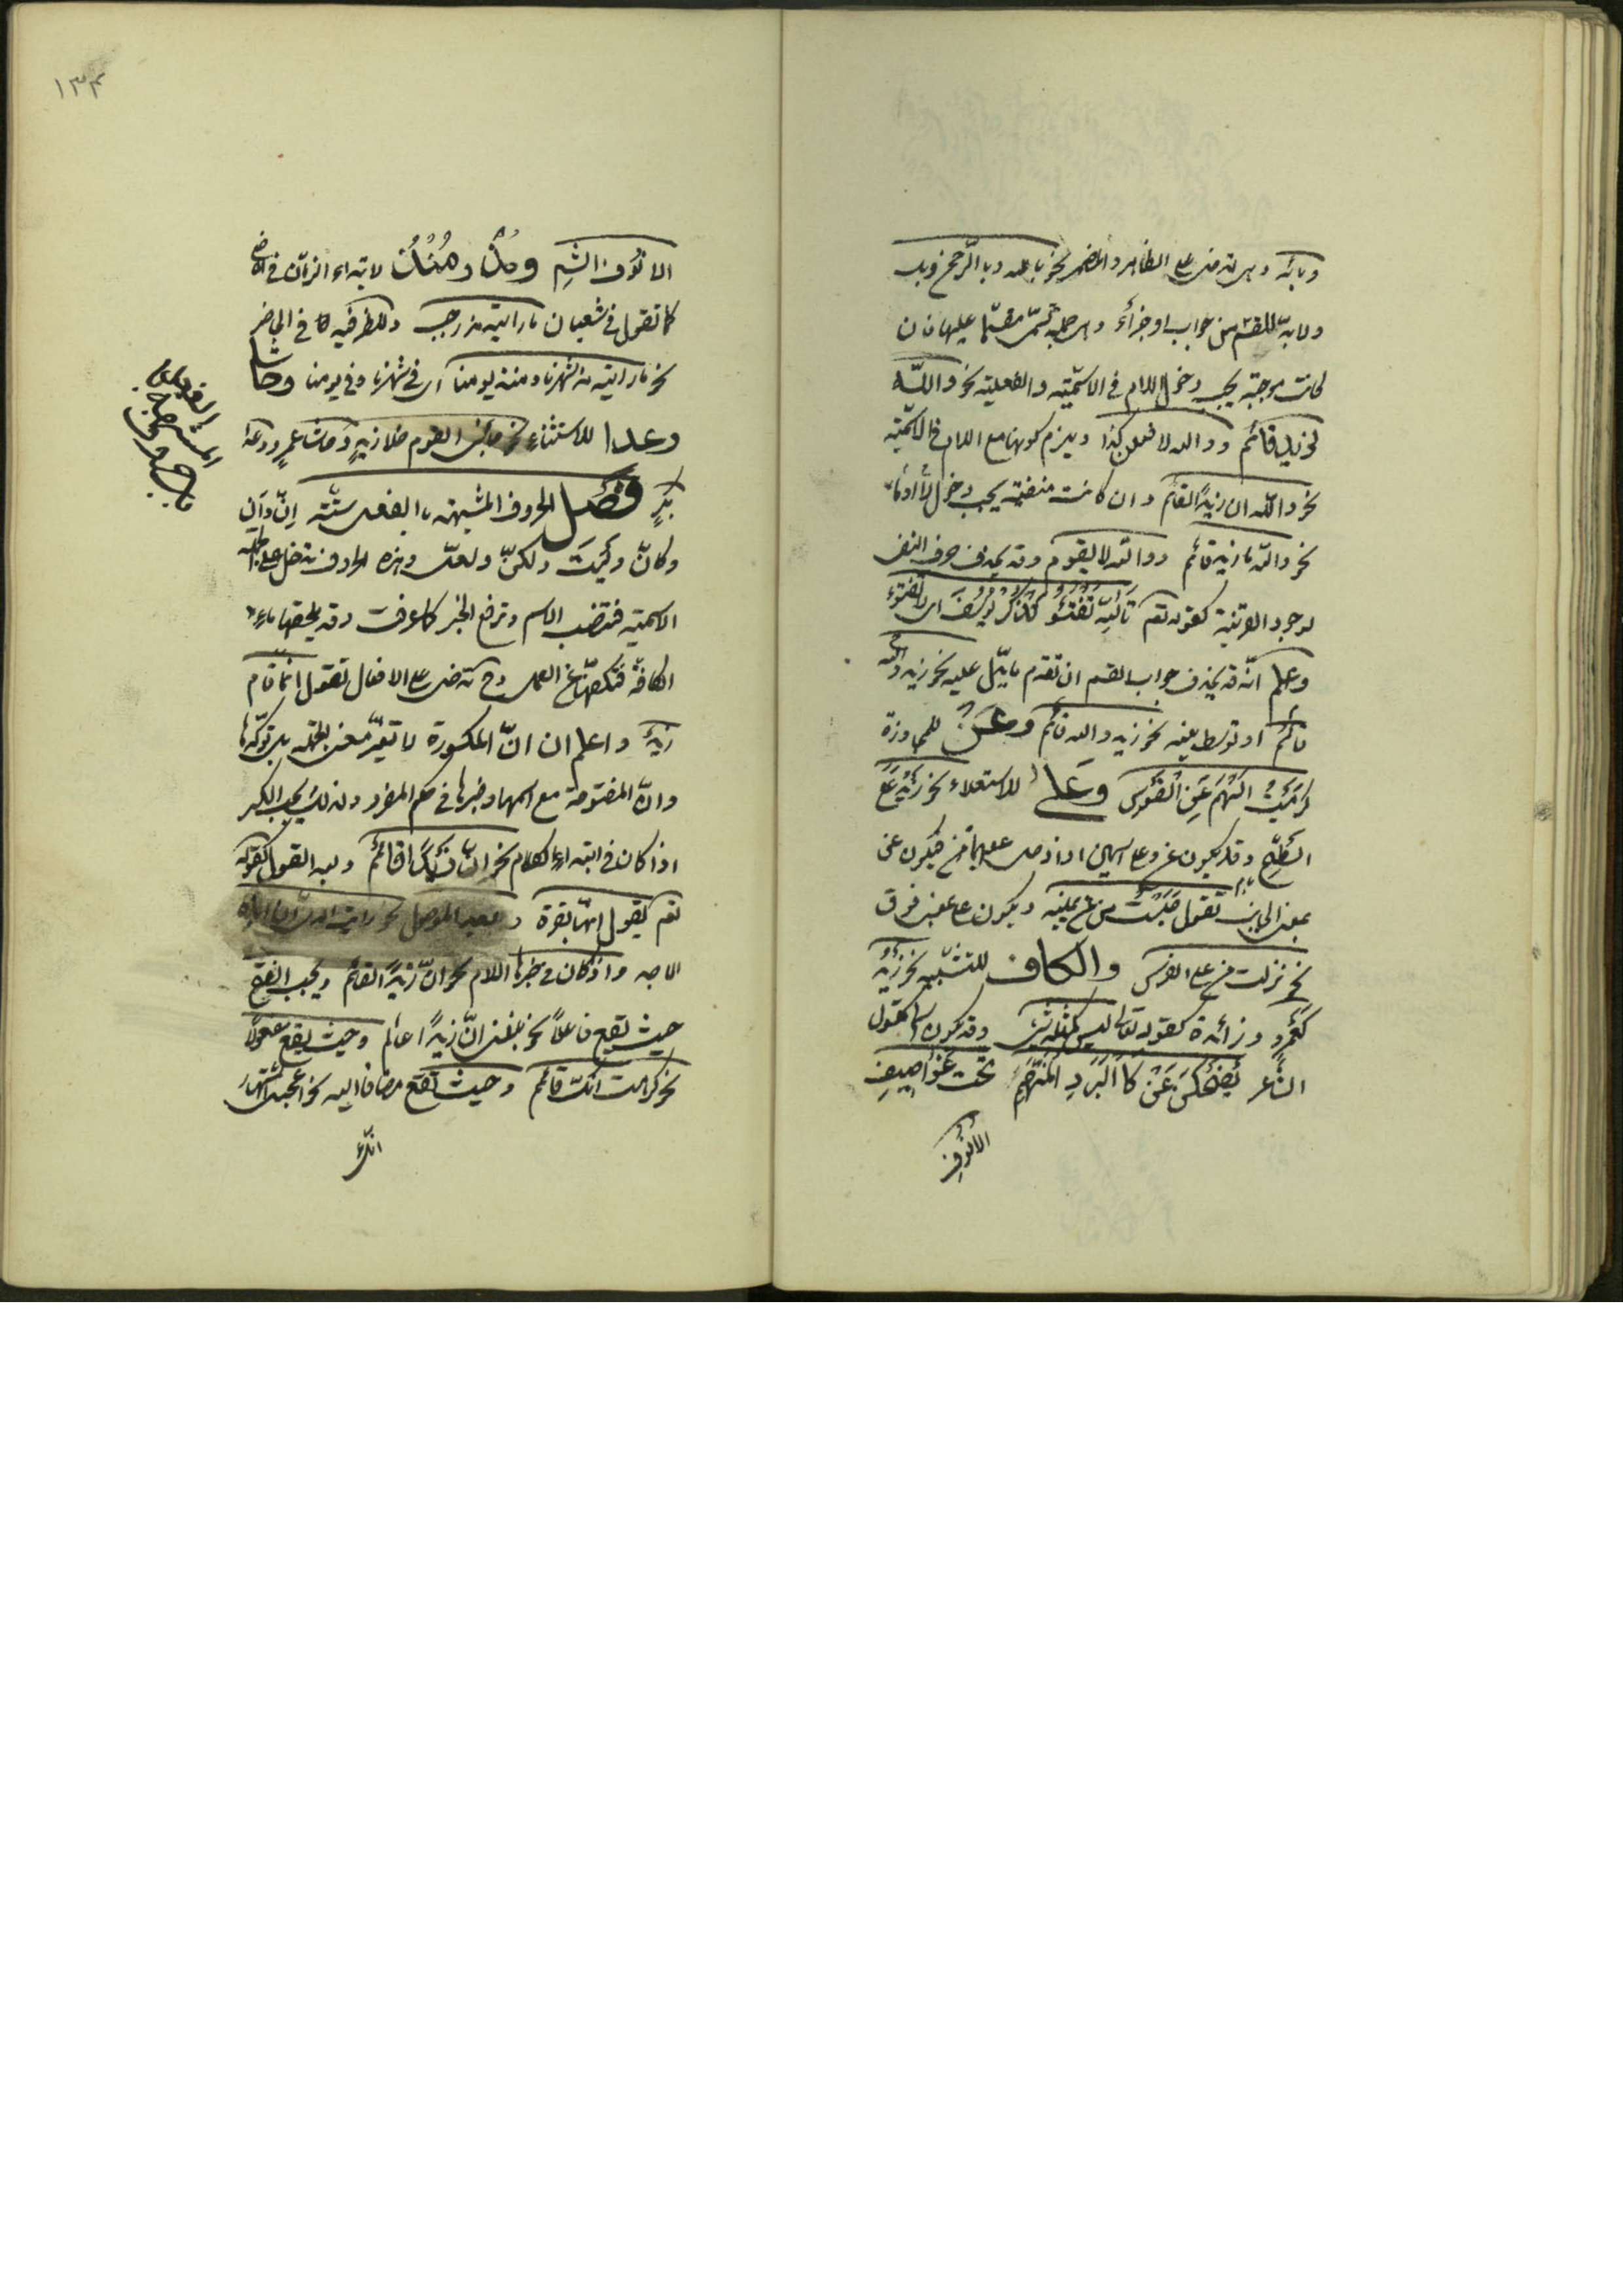 وبائه وهى تدخل على الظاهر والمضمر نحو بالله وبالرحمن وبك
ولابدّ للقسم من جواب او جزاء وهى جملة تسمّى مقسما عليها فان
كانت موجبة يجب دخول اللام فى الاسمّية والفعلية نحو والله
لزيد قائم ووالله لافعلن كذا ويلزم كونها مع اللام فى الاسمّية
نحو واللّه ان زيدًا لقائم وان كانت منفية يجب دخول لا او ما
نحو واللّه ما زيد قائم وواللّه لا يقوم وقد يحذف حرف النفى
لوجود القرينة كقوله تعم تَاللّهِ تَفْتَؤُ تَذْكُرُ يُوسُفَ اى لا تفتؤ
وعلم انّه قد يحذف جواب القسم ان تقدم ما يدّل عليه نحو زيد
قائم والله او توسط بينه نحو زيد والله قائم وعَنْ للمجاوزة
كرَمَيْتُ السَّهْمَ عَنِ الْقَوْسِ وعَلى للاستعلاء نحو زَيْدٌ عَلَى
السَّطْحِ وقد يكون عن وعلى اسمين اذا دخل عليهما من فيكون عن
بمعنى الجانب تقول جَلَسْتُ من عن يمينه ويكون على بمعنى فوق
نحو نزلت من على الفرس والكاف للتشبيه نحو زَيْدٌ
كَعَمْرٍو وزائدة كقوله تعالى ليس كمثله شىء وقد تكون اسما كقول
الشاعر يَضْحَكْنَ عَنْ كَالْبَرَدِ الْمُنْهَمِّ تحت عَرَاصِيفِ
الاُنُوفِ
١٣۴
الانُوف الشمِ ومُذْ ومُنْذُ لابتداء الزمان فى الماضى
كما تقول فى شعبان ما رايته مذ رجب وللظرفيه فى الحاضر
نحو ما رايته مذ شهرنا ومنذ يومنا اى فى شهرنا وفى يومنا وحَاشا
وعدا للاستثناء نحو جائنى القوم خلا زيدٍ وحاشا عمرٍو وعدا
بكرٍ فصل الحروف المشبهة بالفعل ستّة اِنّ واَنّ
وكانّ ولَيْتَ ولكنّ ولعلّ وهذه الحروف تدخل على الجملة
الاسمية فتنصب الاسم وترفع الخبر كما عرفت وقد يلحقها ماء
الكافّة فتكفّها عن العمل وح تدخل على الافعال تقول انّما قام
زيدٌ واعلم ان انّ المكسورة لا تغيّر معنى الجملة بل توكّدها
وانّ المفتوحة مع اسمها وخبرها فى حكم المفرد ولذلك يجب الكسر
اذا كان فى ابتداء الكلام نحو انّ زَيْدًا قائمٌ وبعد القول كقوله
تعم يقول انّها بقرة وبعد الموصول نحو رايت الذى انّه
الماجد واذا كان فى خبرها اللام نحو انّ زيدًا لقائم ويجب الفتح
حيث تقع فاعلاً نحو بلغنى انّ زيدًا عالم وحيث يقع مفعولاً
نحو كرهت انّك قائم وحيث تقع مضافا اليه نحو اعجبنى اشتهار
انّك